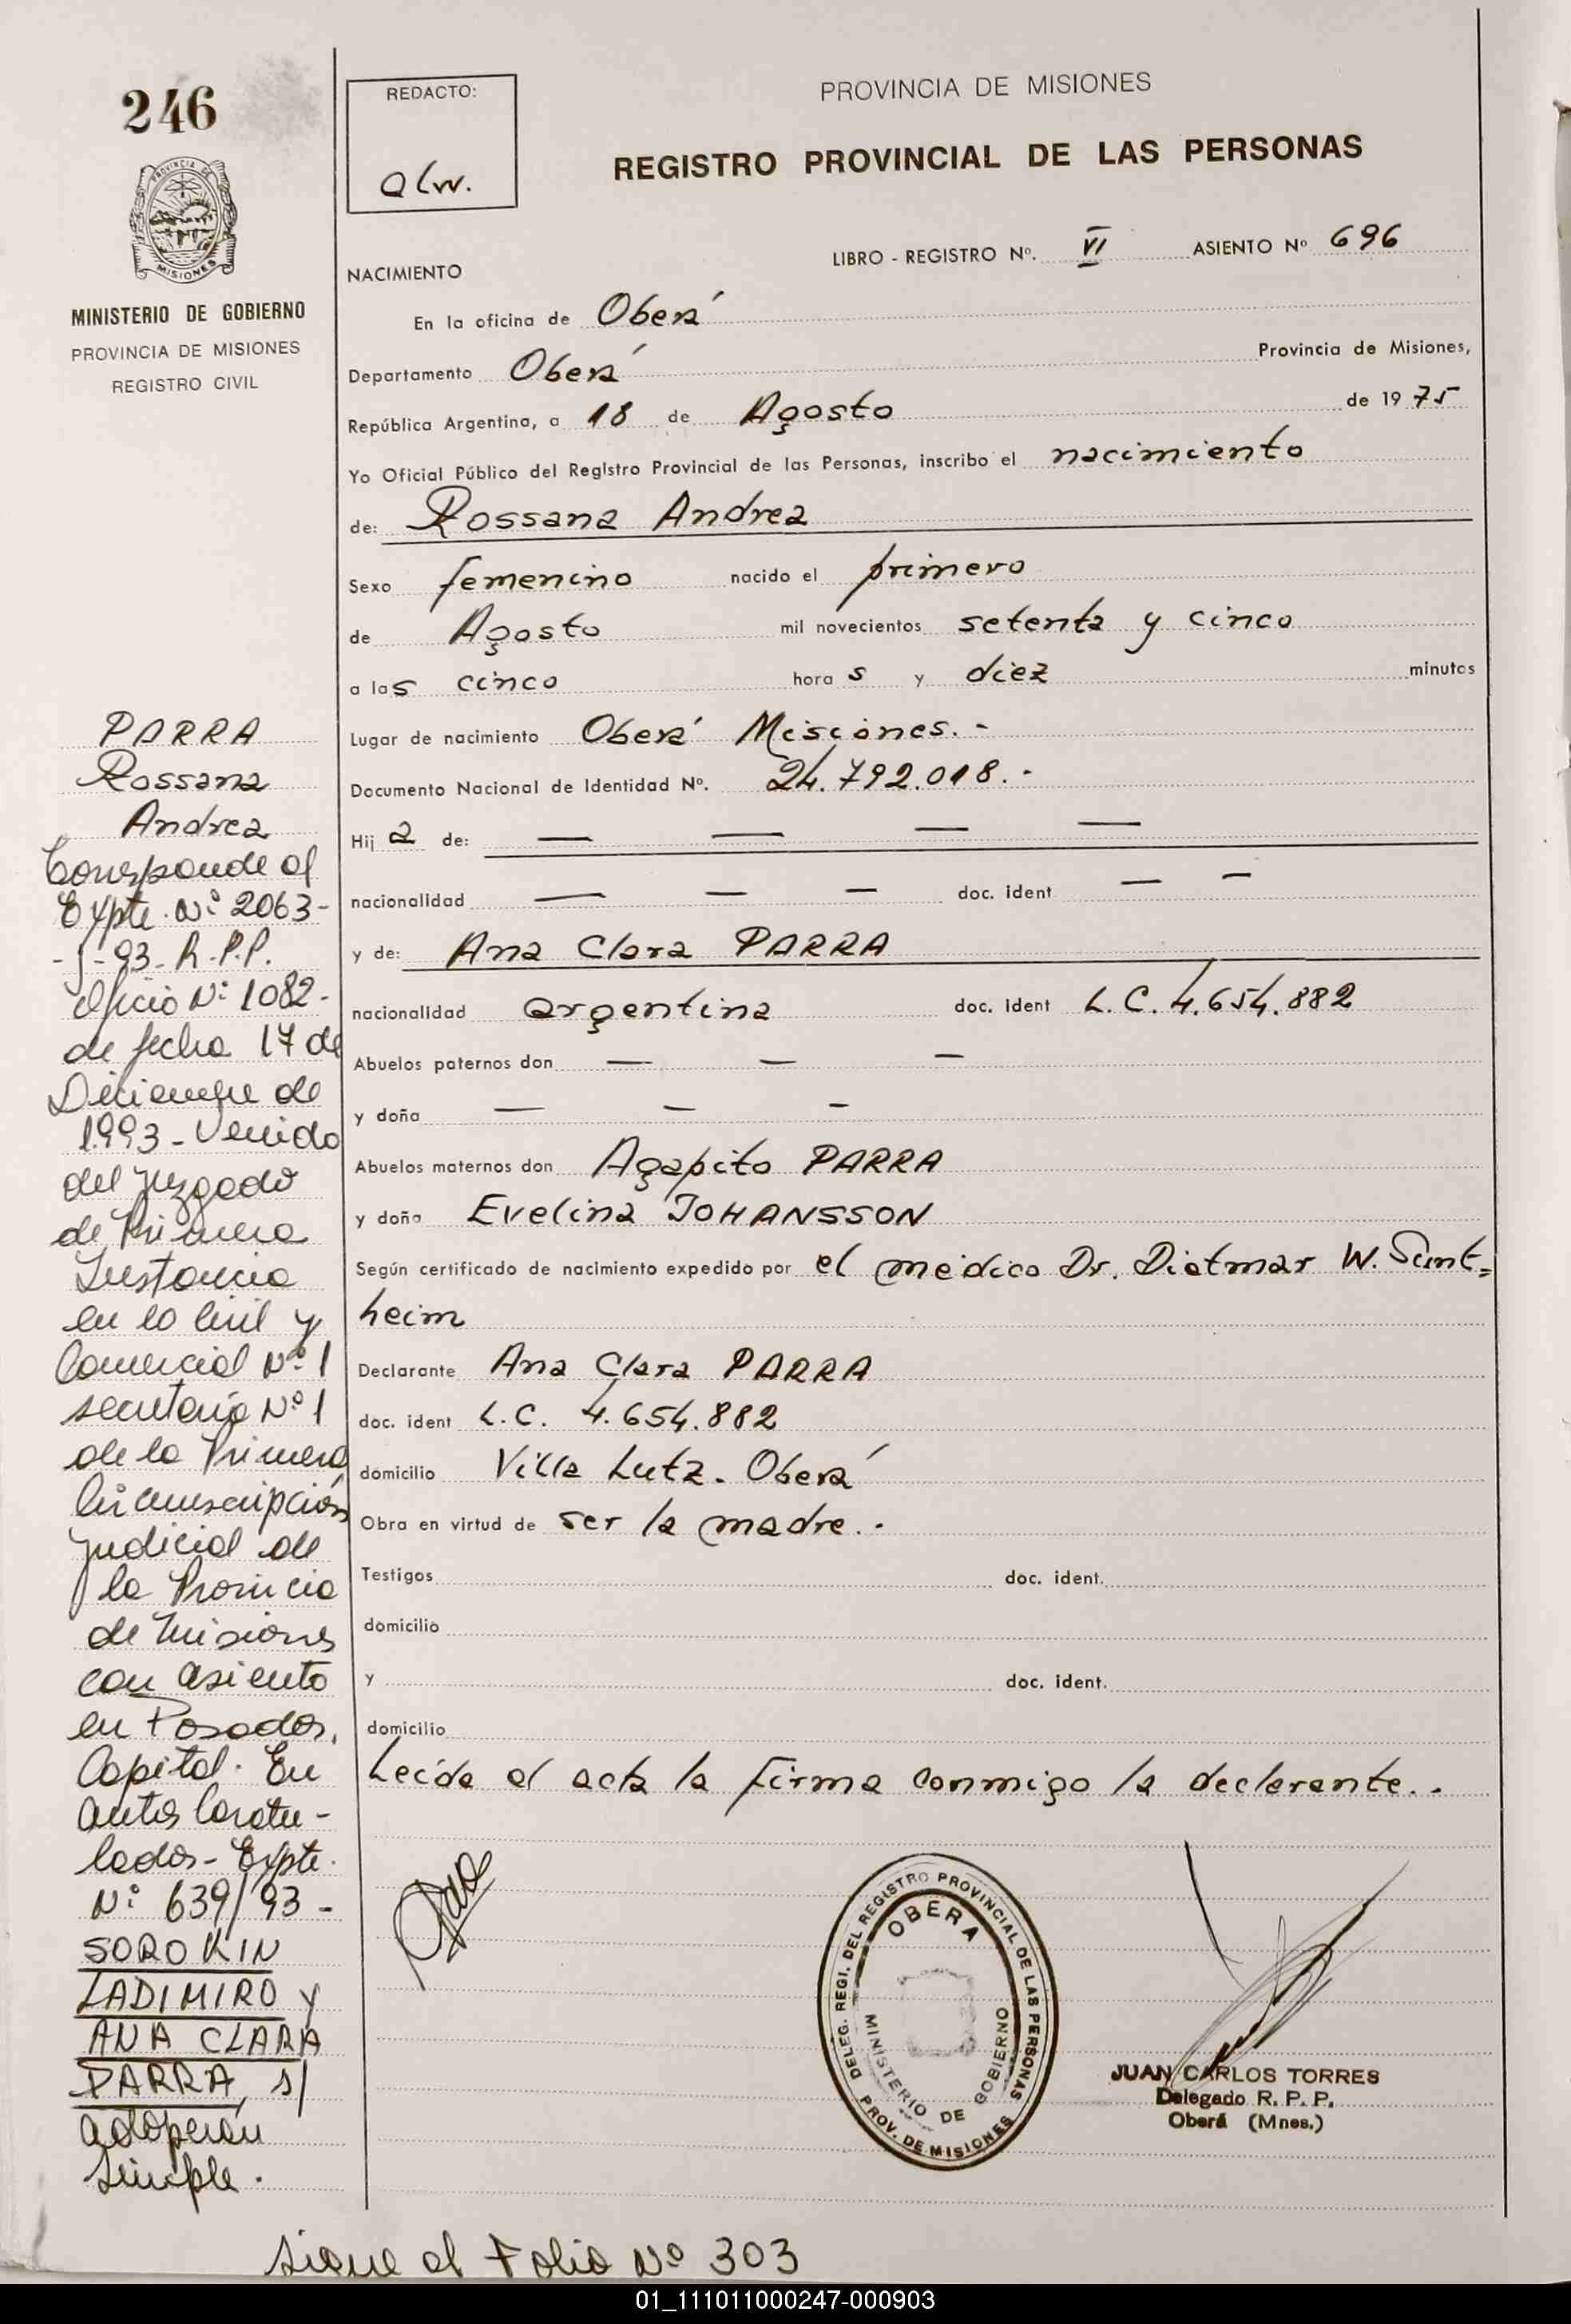 246
PROVINCIA DE
MISIONES
MINISTERIO DE GOBIERNO
PROVINCIA DE MISIONES
REGISTRO CIVIL
REDACTO:
alw.
PROVINCIA DE MISIONES
REGISTRO PROVINCIAL DE LAS PERSONAS
LIBRO - REGISTRO Nº. VI ASIENTO Nº 696
NACIMIENTO
En la oficina de Oberá
Departamento Oberá Provincia de Misiones,
República Argentina, a 18 de Agosto de 1975
Yo Oficial Público del Registro Provincial de las Personas, inscribo el nacimiento
de: Rossana Andrea
Sexo femenino nacido el primero
de Agosto mil novecientos setenta y cinco
a las cinco horas y diez minutos
Lugar de nacimiento Oberá Misiones. -
Documento Nacional de Identidad Nº. 24.792.018. -
Hija de: — — — —
nacionalidad — — — doc. ident — —
y de: Ana Clara PARRA
nacionalidad argentina doc. ident L.C. 4.654.882
Abuelos paternos don — — —
y doña — — —
Abuelos maternos don Agapito PARRA
y doña Evelina JOHANSSON
Según certificado de nacimiento expedido por el médico Dr. Dietmar W. Sunt=
heim
Declarante Ana Clara PARRA
doc. ident L.C. 4.654.882
domicilio Villa Lutz. Oberá
Obra en virtud de ser la madre. -
Testigos doc. ident.
domicilio
y doc. ident.
domicilio
Leida el acta la firma conmigo la declarante. -
PARRA
Rossana
Andrea
Corresponde al
Expte. Nº 2063-
-J-93-R.P.P.
Oficio Nº 1082-
de fecha 17 de
Diciembre de
1993- Venido
del Juzgado
de Primera
Instancia
en lo Civil y
Comercial Nº 1
secretaría Nº 1
de la Primera
Circunscripción
Judicial de
la Provincia
de Misiones
con asiento
en Posadas,
Capital. En
autos Caratu-
lados- Expte.
Nº 639/93 -
SOROKIN
LADIMIRO y
ANA CLARA
PARRA, s/
adopción
simple.
DELEG. REGI. DEL REGISTRO PROVINCIAL DE LAS PERSONAS
OBERA
MINISTERIO DE GOBIERNO
PROV. DE MISIONES
JUAN CARLOS TORRES
Delegado R. P. P.
Oberá (Mnes.)
Sigue al Folio Nº 303
01_111011000247-000903